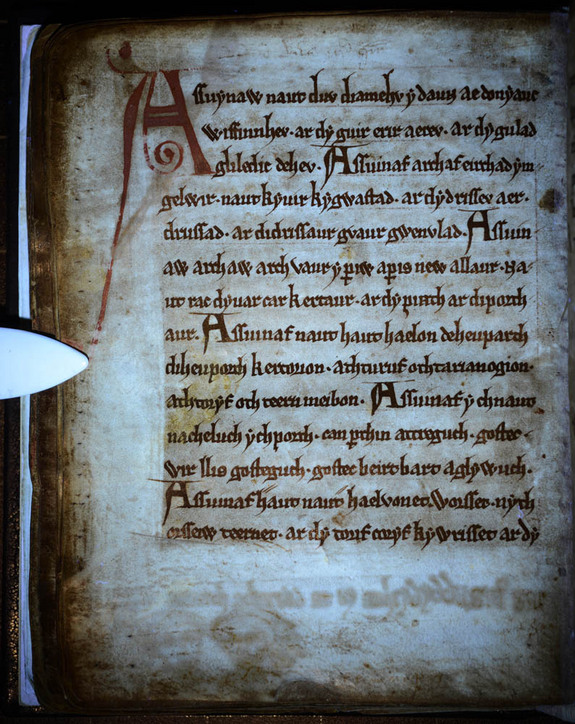 Assuynaw naut duv diamehv y daun ae donyauc
wissuinhev. ar dy guir erir aerev. ar dy gulad
guledic dehev. Assuinaf archaf eirchad ym
gelwir. naut kyuir kygwastad. ar dy drissev aer.
drussad. ar di drissaur gvaur gwenvlad. Assuin
aw archaw arch vaur y periw a peris new a llaur. Na
ut rac dy uar car kertaur. ar dy pirth ar di porth
aur. Assuinaf naut haut haelon deheuparth
diheuporth kertorion. ath turuf oth tarianogion.
ath toryf oth teern meibon. Assuinaf ych naut
nacheluch ych porth. can perthin attreguch. gostec
wir llis gosteguch. gostec beirt bart aglywuch.
Assuinaf haut naut haelvonet. Worsset. nyth
orssew teernet. ar dy toruf coryf kywrisset ar dy